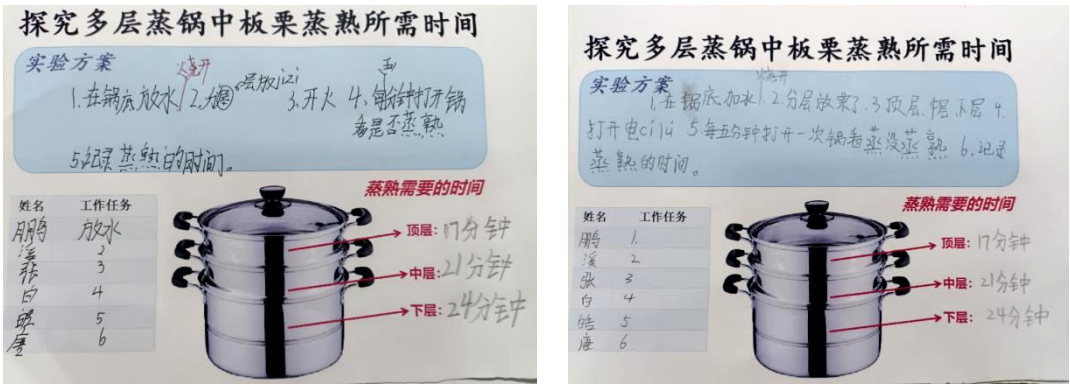 探究多层蒸锅中板栗蒸熟所需时间
实验方案
烧开
1.在锅底放水 2. 层放lizi 3.开火 4. 每 分钟打开锅
看是否蒸熟
5.记录蒸熟的时间。
姓名 工作任务
鹏 放水
溪 2
张 3
白 4
皓 5
唐 6
蒸熟需要的时间
顶层: 17分钟
中层: 21分钟
下层: 24分钟
探究多层蒸锅中板栗蒸熟所需时间
实验方案
烧开
1.在锅底加水 2.分层放栗子.3顶层.中层.下层 4.
打开电cilú 5.每五分钟打开一次锅看蒸没蒸熟 6.记录
蒸熟的时间。
姓名 工作任务
鹏 1.
溪 2
张 3
白 4
皓 5
唐 6
蒸熟需要的时间
顶层: 17分钟
中层: 21分钟
下层: 24分钟